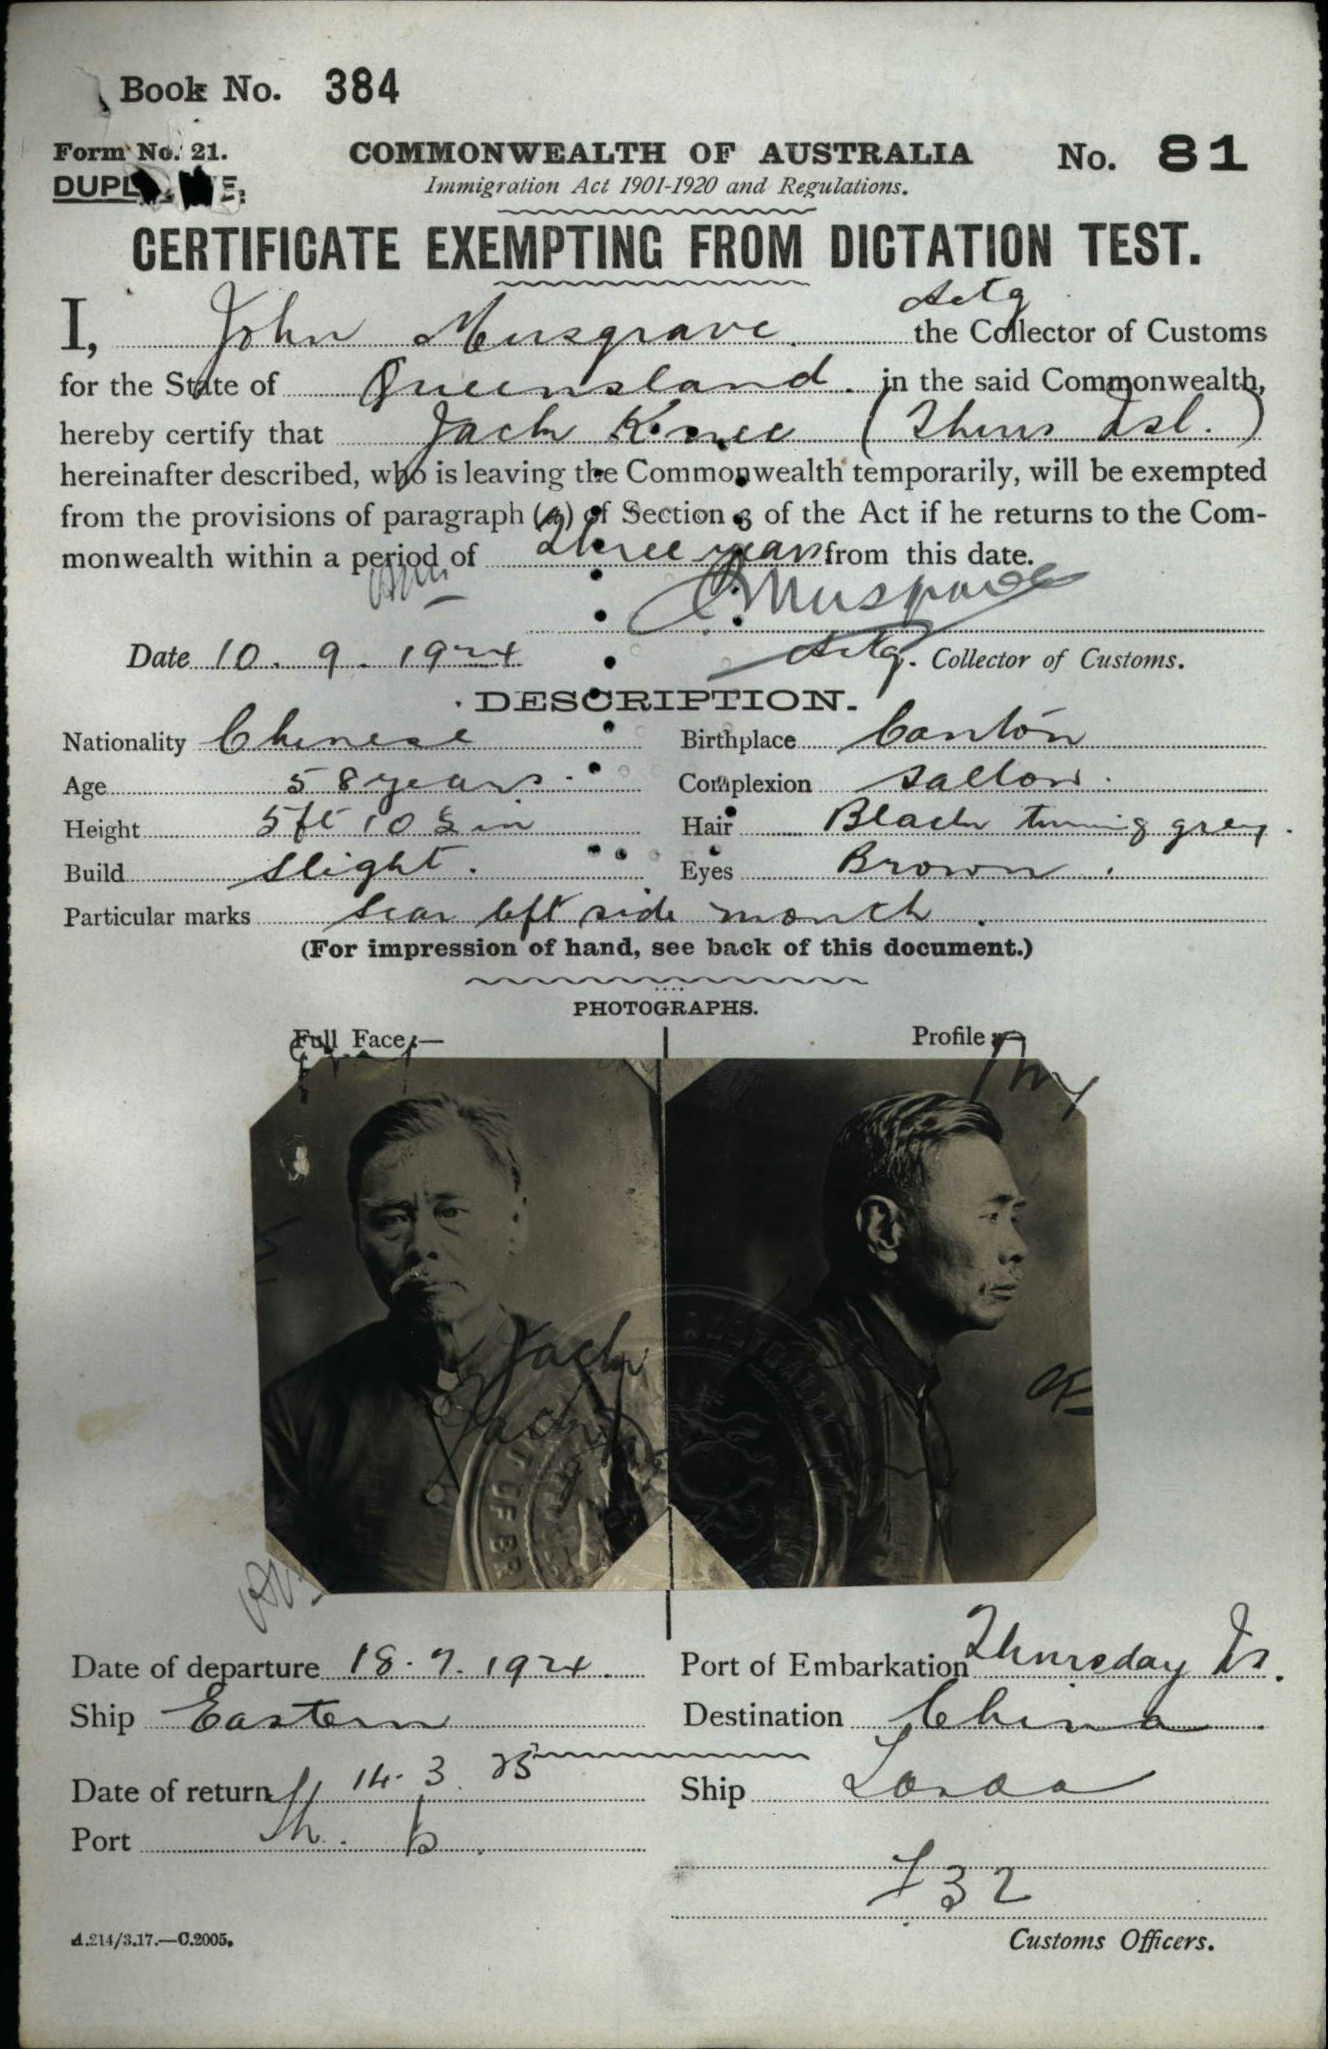 Book No. 384
Form No. 21.
COMMONWEALTH OF AUSTRALIA
No. 81
Immigration Act 1901-1920 and Regulations.
CERTIFICATE EXEMPTING FROM DICTATION TEST.
Actg
I, John Musgrave. the Collector of Customs
for the State of Queensland. in the said Commonwealth,
hereby certify that Jack (Thurs Isl.)
hereinafter described, who is leaving the Commonwealth temporarily, will be exempted
from the provisions of paragraph (a) of Section 3 of the Act if he returns to the Com-
monwealth within a period of three years from this date.
Musgrave
Date 10. 9. 1924 Actg. Collector of Customs.
DESCRIPTION.
Nationality Chinese Birthplace Canton
Age 58 years. Complexion sallow.
Height 5ft 10 in Hair Black turning grey.
Build Slight. Eyes Brown.
Particular marks Scar left side mouth.
(For impression of hand, see back of this document.)
PHOTOGRAPHS.
Full Face:— Profile:—
Jack
Jack
Date of departure 18. 9. 1924. Port of Embarkation Thursday Is.
Ship Eastern Destination China
Date of return 14. 3. 25 Ship
Port
32
A.214/3.17.—C.2005.
Customs Officers.